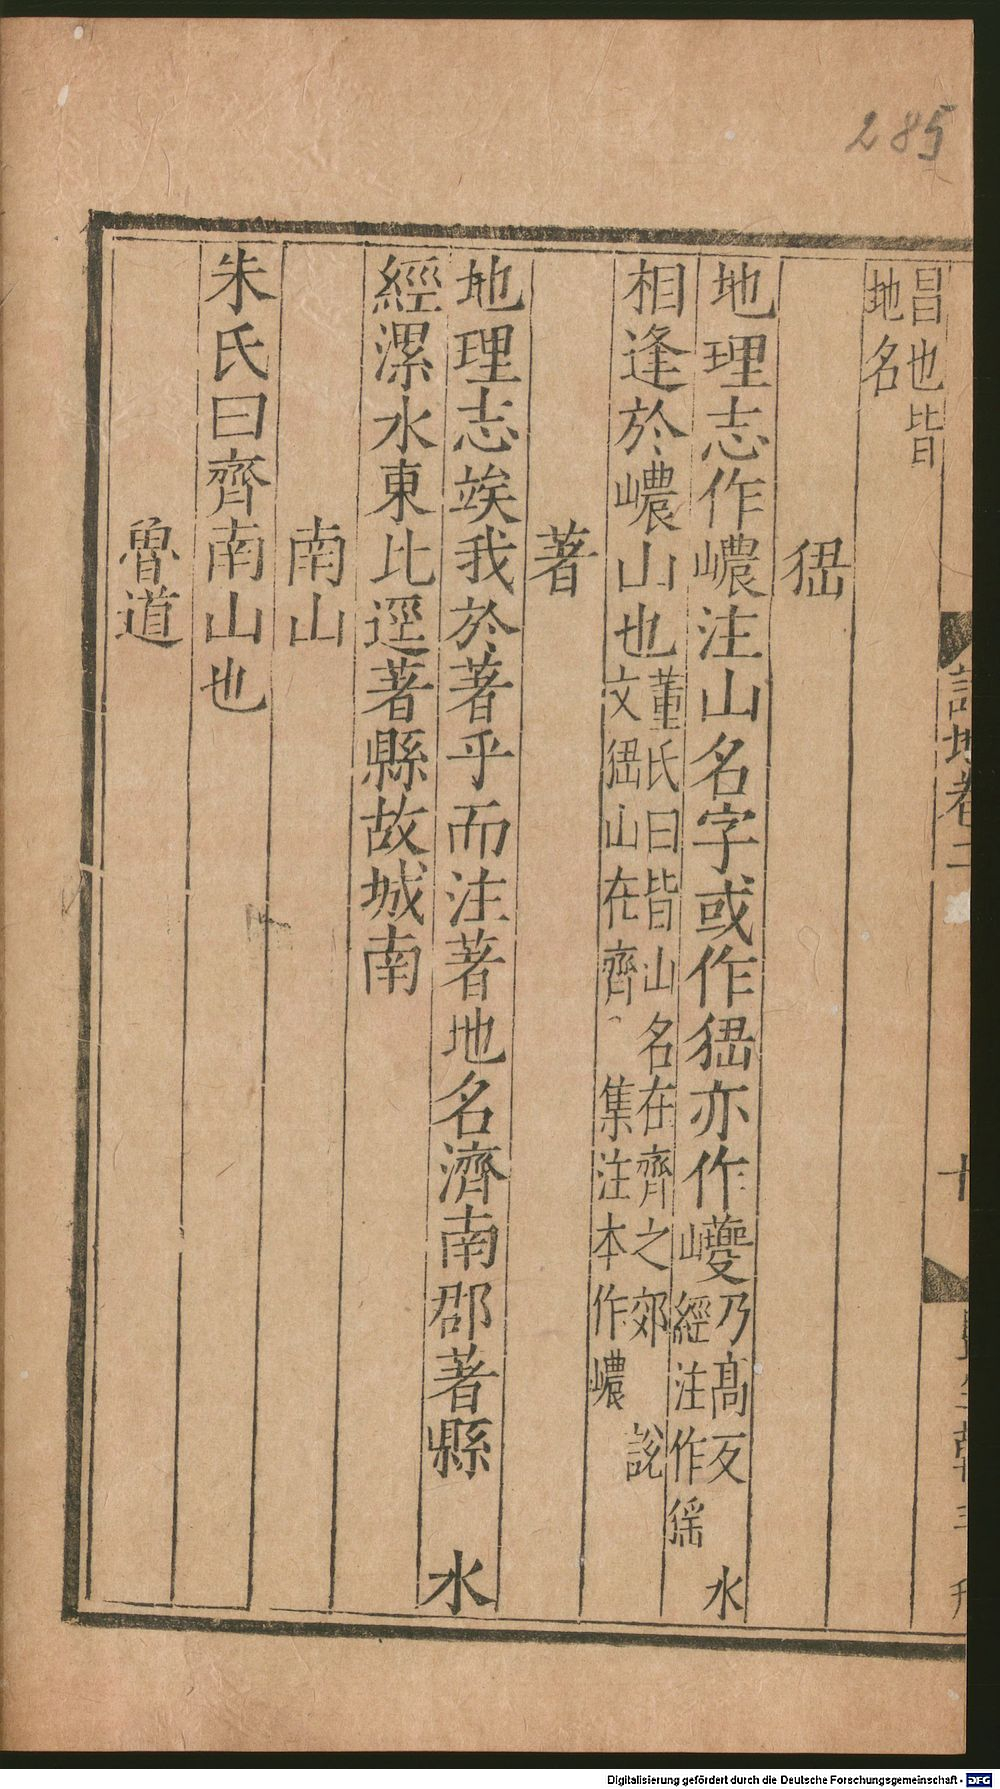 285
昌也皆
地名
峱
地理志作巙注山名字或作峱亦作巎乃高反 水
經注作猺
相逢於巙山也董氏曰皆山名在齊之郊 說
文峱山在齊 集注本作巙
著
地理志竢我於著乎而注著地名濟南郡著縣 水
經漯水東北逕著縣故城南
南山
朱氏曰齊南山也
魯道
詩地卷二
十
Digitalisierung gefördert durch die Deutsche Forschungsgemeinschaft - DFG